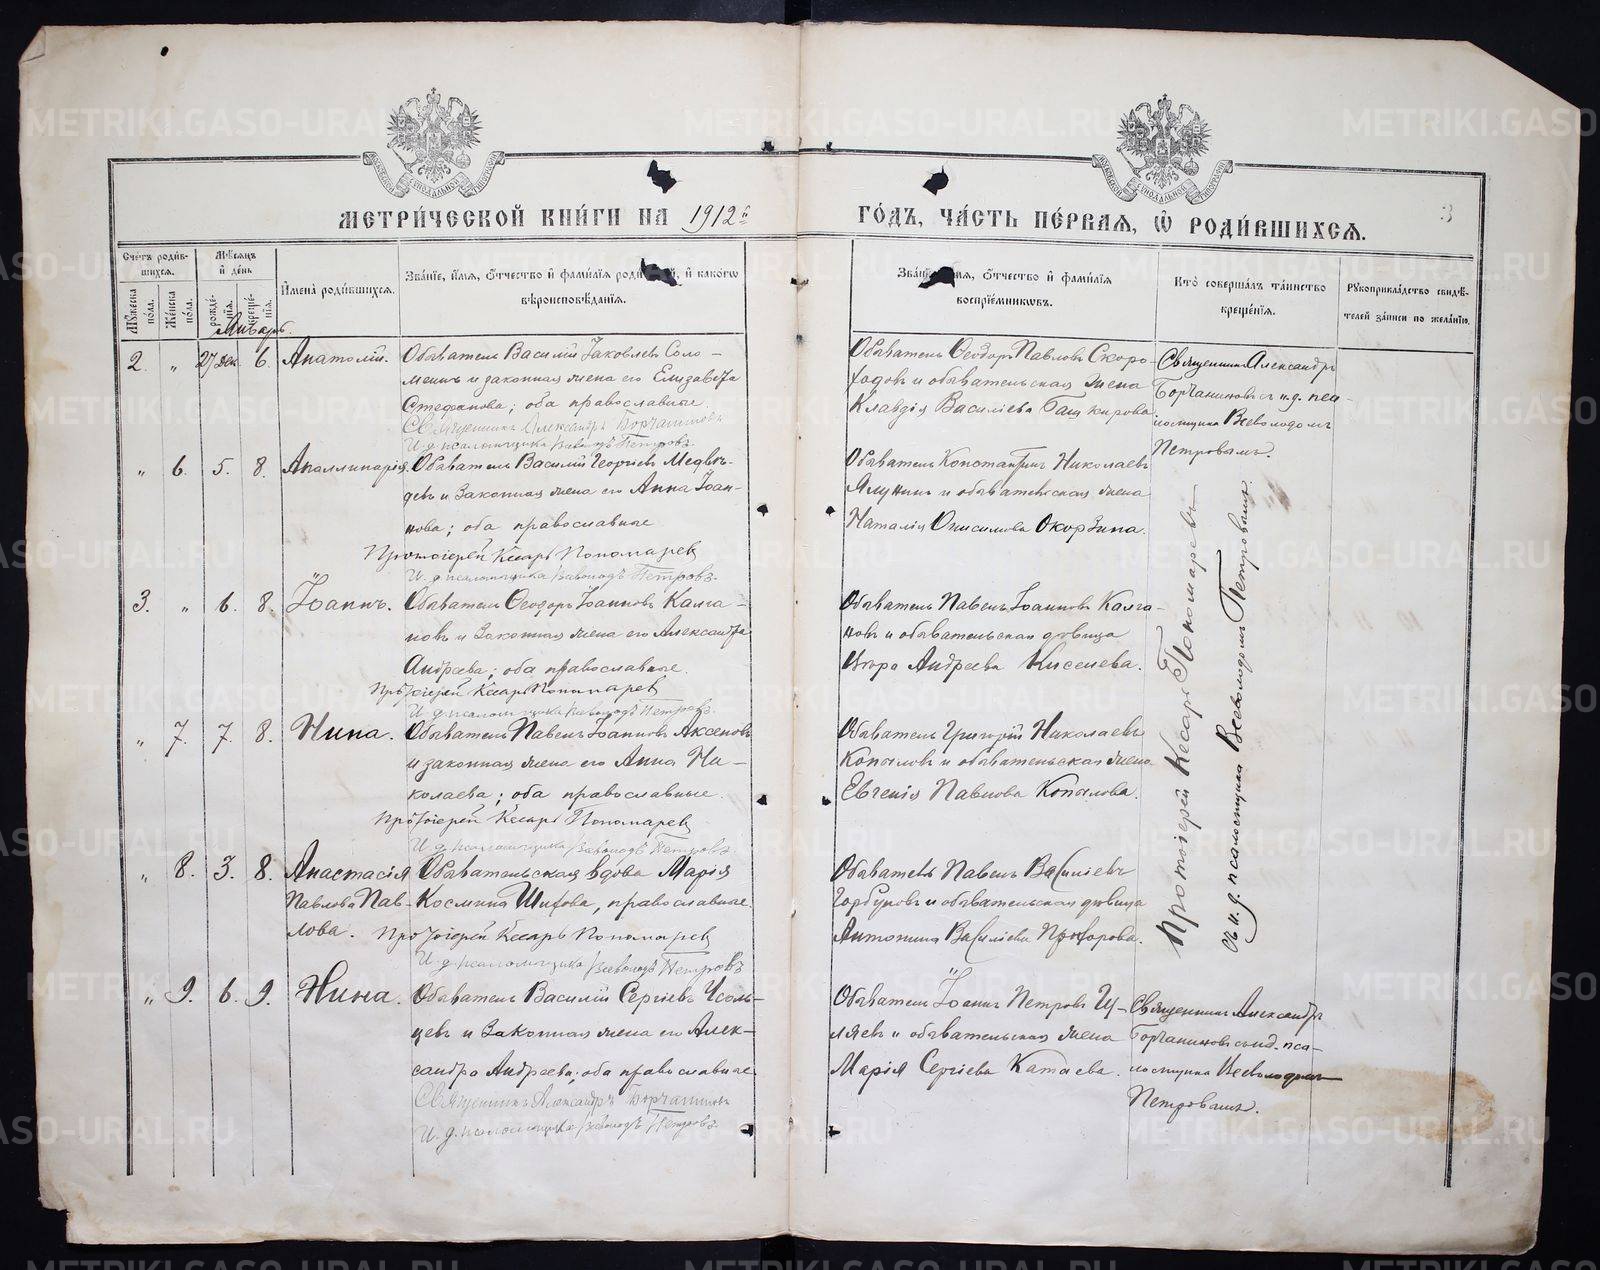 МЕТРИ́ЧЕСКОЙ КНИ́ГИ НА 1912 й
ГО́ДЪ, ЧА́СТЬ ПЕ́РВАЯ, Ѡ РОДИ́ВШИХСЯ.
3
Сче́тъ роди́вшихся.
Му́жеска по́ла.
Же́нска по́ла.
Мѣ́сяцъ и де́нь
рожде́нїя.
креще́нїя.
Имена̀ роди́вшихся.
Зва́нїе, и́мя, ѻ́тчество и фами́лїя роди и како́гѡ
вѣроисповѣ́данїя.
Зва́нїе, и́мя, ѻ́тчество и фами́лїя
воспрїе́мникѡвъ.
Кто̀ соверша́лъ та́инство
креще́нїя.
Рукоприкла́дство свидѣ́-
телей за́писи по жела́нїю.
Январь.
2. " 27 Дек. 6. Анатолій.
Обыватель Василій Іаковлевъ Соло-
менъ и законная жена его Елизавета
Стефанова; оба православные.
Священникъ Александръ Борчаниновъ
И. д. псаломщика Всеволодъ Петровъ.
Обыватель Ѳеодоръ Павловъ Скоро-
ходовъ и обывательская жена
Клавдія Василіева Бащкирова
Священникъ Александръ
Борчаниновъ съ и.д. пса-
ломщика Всеволодомъ
Петровымъ.
" 6. 5. 8. Аполлинарія.
Обыватель Василій Георгіевъ Медвѣ-
девъ и законная жена его Анна Іоан-
нова; оба православные
Протоіерей Кесарь Пономаревъ
И. д. псаломщика Всеволодъ Петровъ.
Обыватель Константинъ Николаевъ
Ялунинъ и обывательская жена
Наталія Онисимова Окорзина.
Протоіерей Кесарь Пономаревъ
съ и. д. псаломщика Всеволодомъ Петровымъ.
3. " 6. 8. Іоаннъ.
Обыватель Ѳеодоръ Іоанновъ Калга-
новъ и законная жена его Александра
Андреева; оба православные.
Протоіерей Кесарь Пономаревъ
И. д. псаломщика Всеволодъ Петровъ.
Обыватель Павелъ Іоанновъ Калга-
новъ и обывательская дѣвица
Андреева Киселева.
" 7. 7. 8. Нина.
Обыватель Павелъ Іоанновъ Аксеновъ
и законная жена его Анна Ни-
колаева; оба православные.
Протоіерей Кесарь Пономаревъ
И. д. псаломщика Всеволодъ Петровъ.
Обыватель Григорій Николаевъ
Копыловъ и обывательская жена
Евгенія Павлова Копылова.
" 8. 3. 8. Анастасія
Павлова Пав-
лова.
Обывательская вдова Марія
Космина Шитова, православные.
Протоіерей Кесарь Пономаревъ
И. д. псаломщика Всеволодъ Петровъ
Обыватель Павелъ Василіевъ
Горбуновъ и обывательская дѣвица
Антонина Василіева Прохорова.
" 9. 6. 9. Нина.
Обыватель Василій Сергіевъ Усоль-
цевъ и законная жена его Алек-
сандра Андреева; оба православные
Священникъ Александръ Борчаниновъ
И. д. псаломщика Всеволодъ Петровъ.
Обыватель Іоаннъ Петровъ
и обывательская жена
Марія Сергіева Катаева.
Священникъ Александръ
Борчаниновъ съ и.д. пса-
ломщика Всеволодомъ
Петровымъ.
METRIKI.GASO-URAL.RU